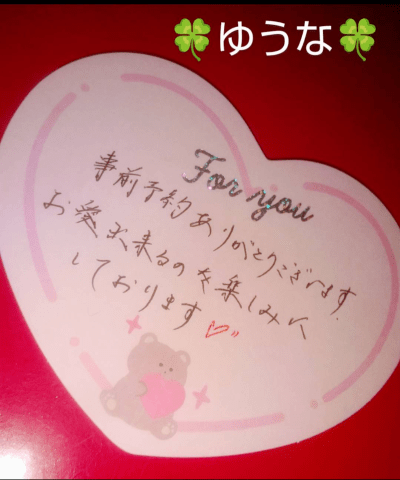 🍀ゆうな🍀
For you
事前予約ありがとうございます。
お逢い出来るのを楽しみに
しております♡